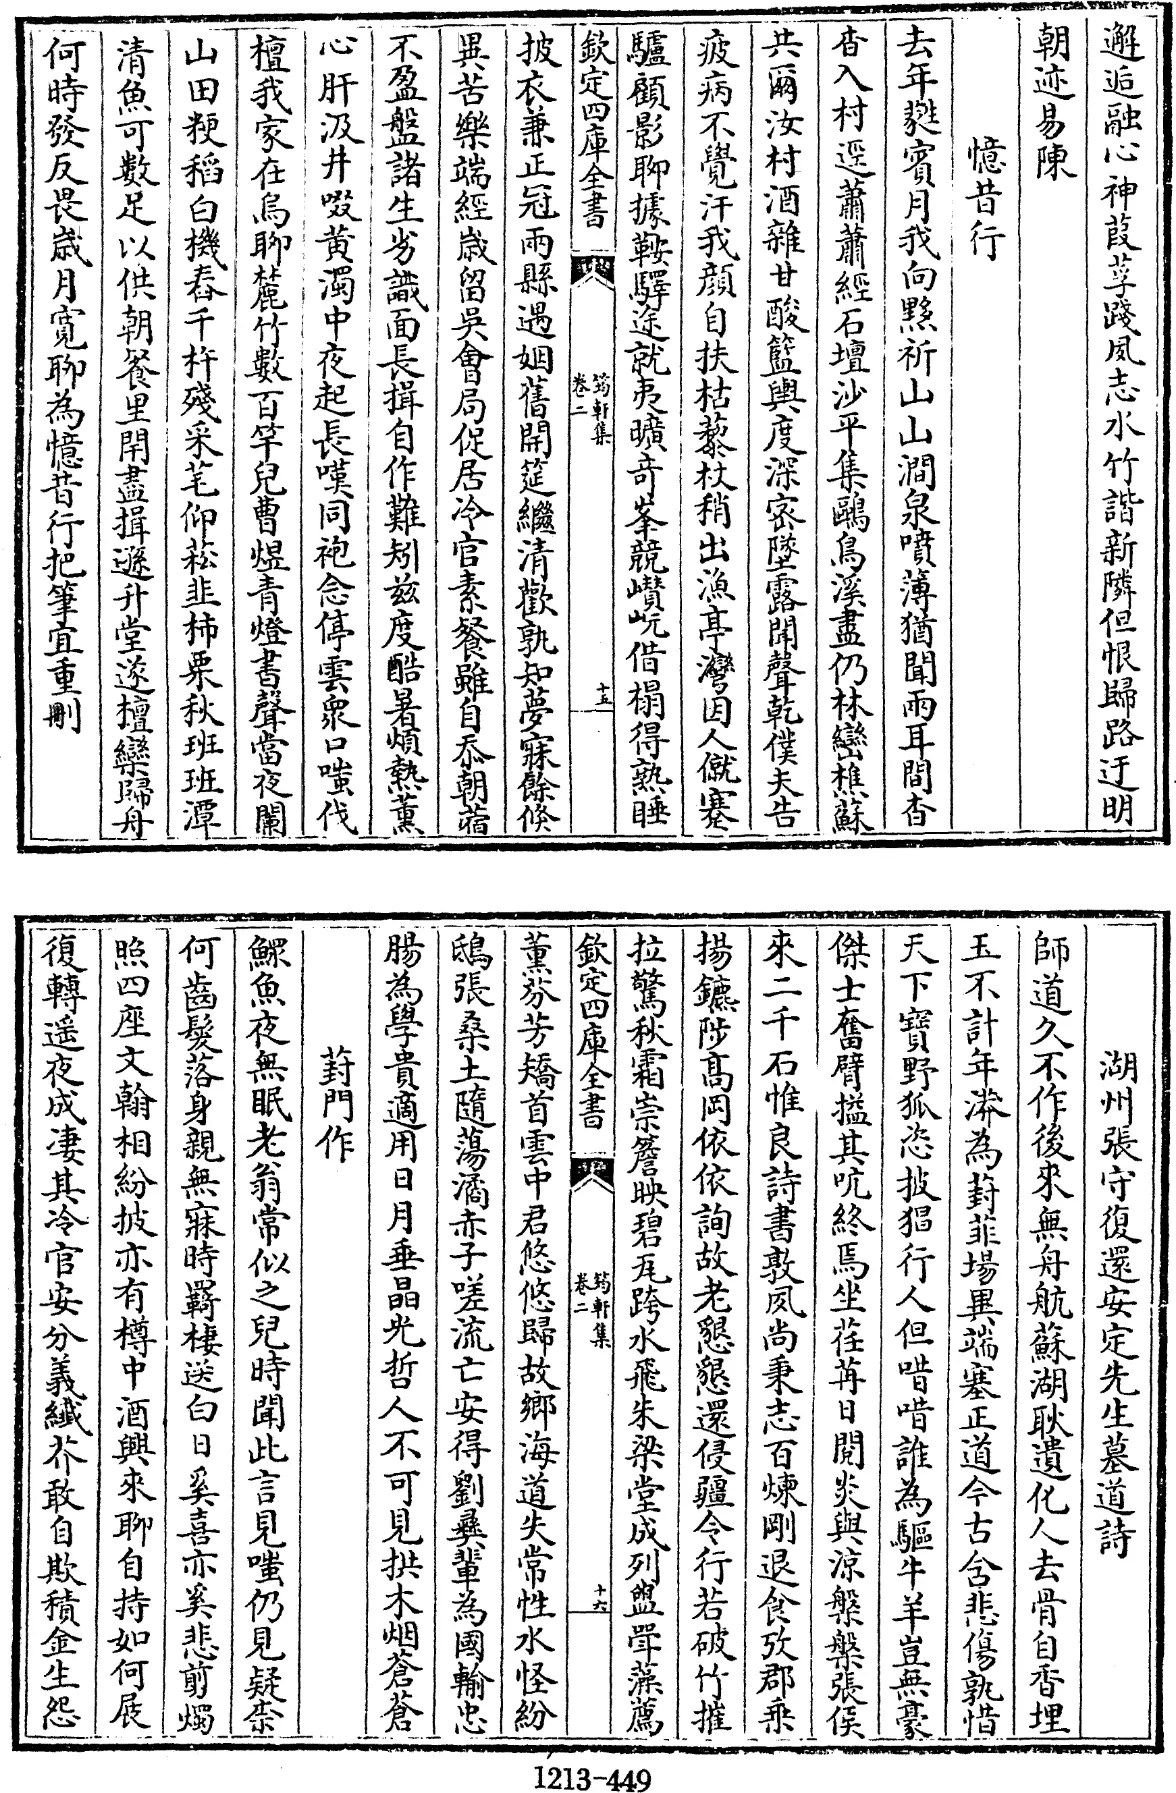 邂逅融心神葭莩踐夙志水竹諧新隣但恨歸路迂明
朝迹易陳
憶昔行
去年蕤賓月我向黟祈山山澗泉噴薄猶聞兩耳間杳
杳入村逕蕭蕭經石壇沙平集鷗鳥溪盡仍林巒樵蘇
共爾汝村酒雜甘酸籃輿度深密墜露聞聲乾僕夫告
疲病不覺汗我顔自扶枯藜杖稍出漁亭灣因人僦蹇
驢顧影聊據鞍驛途就夷曠竒峯競巑岏借榻得熟睡
欽定四庫全書
筠軒集
卷二
十五
披衣兼正冠兩縣遇姻舊開筵繼清歡孰知夢寐餘倐
異苦樂端經歲留吳會局促居冷官素餐雖自忝朝蓿
不盈盤諸生劣識面長揖自作難矧兹度酷暑煩熱薰
心肝汲井啜黄濁中夜起長嘆同袍念停雲衆口嗤伐
檀我家在烏聊麓竹數百竿兒曹煜青燈書聲當夜闌
山田粳稻白機舂千杵殘采芼仰菘韭柿栗秋班班潭
清魚可數足以供朝餐里閈盡揖遜升堂遂檀欒歸舟
何時發反畏歲月寛聊為憶昔行把筆宜重刪
湖州張守復還安定先生墓道詩
師道久不作後來無舟航蘇湖耿遺化人去骨自香埋
玉不計年漭為葑菲場異端塞正道今古含悲傷孰惜
天下寶野狐恣披猖行人但唶唶誰為驅牛羊豈無豪
傑士奮臂搤其吭終焉坐荏苒日閱炎與涼槃槃張侯
來二千石惟良詩書敦夙尚秉志百煉剛退食攷郡乗
揚鑣陟髙岡依依詢故老懇懇還侵疆令行若破竹摧
拉驚秋霜崇簷映碧瓦跨水飛朱梁堂成列盥斝藻薦
欽定四庫全書
筠軒集
卷二
十六
薰芬芳矯首雲中君悠悠歸故鄉海道失常性水怪紛
鴟張桑土隨蕩潏赤子嗟流亡安得劉彞輩為國輸忠
腸為學貴適用日月垂晶光哲人不可見拱木烟蒼蒼
葑門作
鰥魚夜無眠老翁常似之兒時聞此言見嗤仍見疑柰
何齒髮落身親無寐時羇棲送白日奚喜亦奚悲剪燭
照四座文翰相紛披亦有樽中酒興來聊自持如何展
復轉遥夜成凄其冷官安分義纖芥敢自欺積金生怨
1213-449